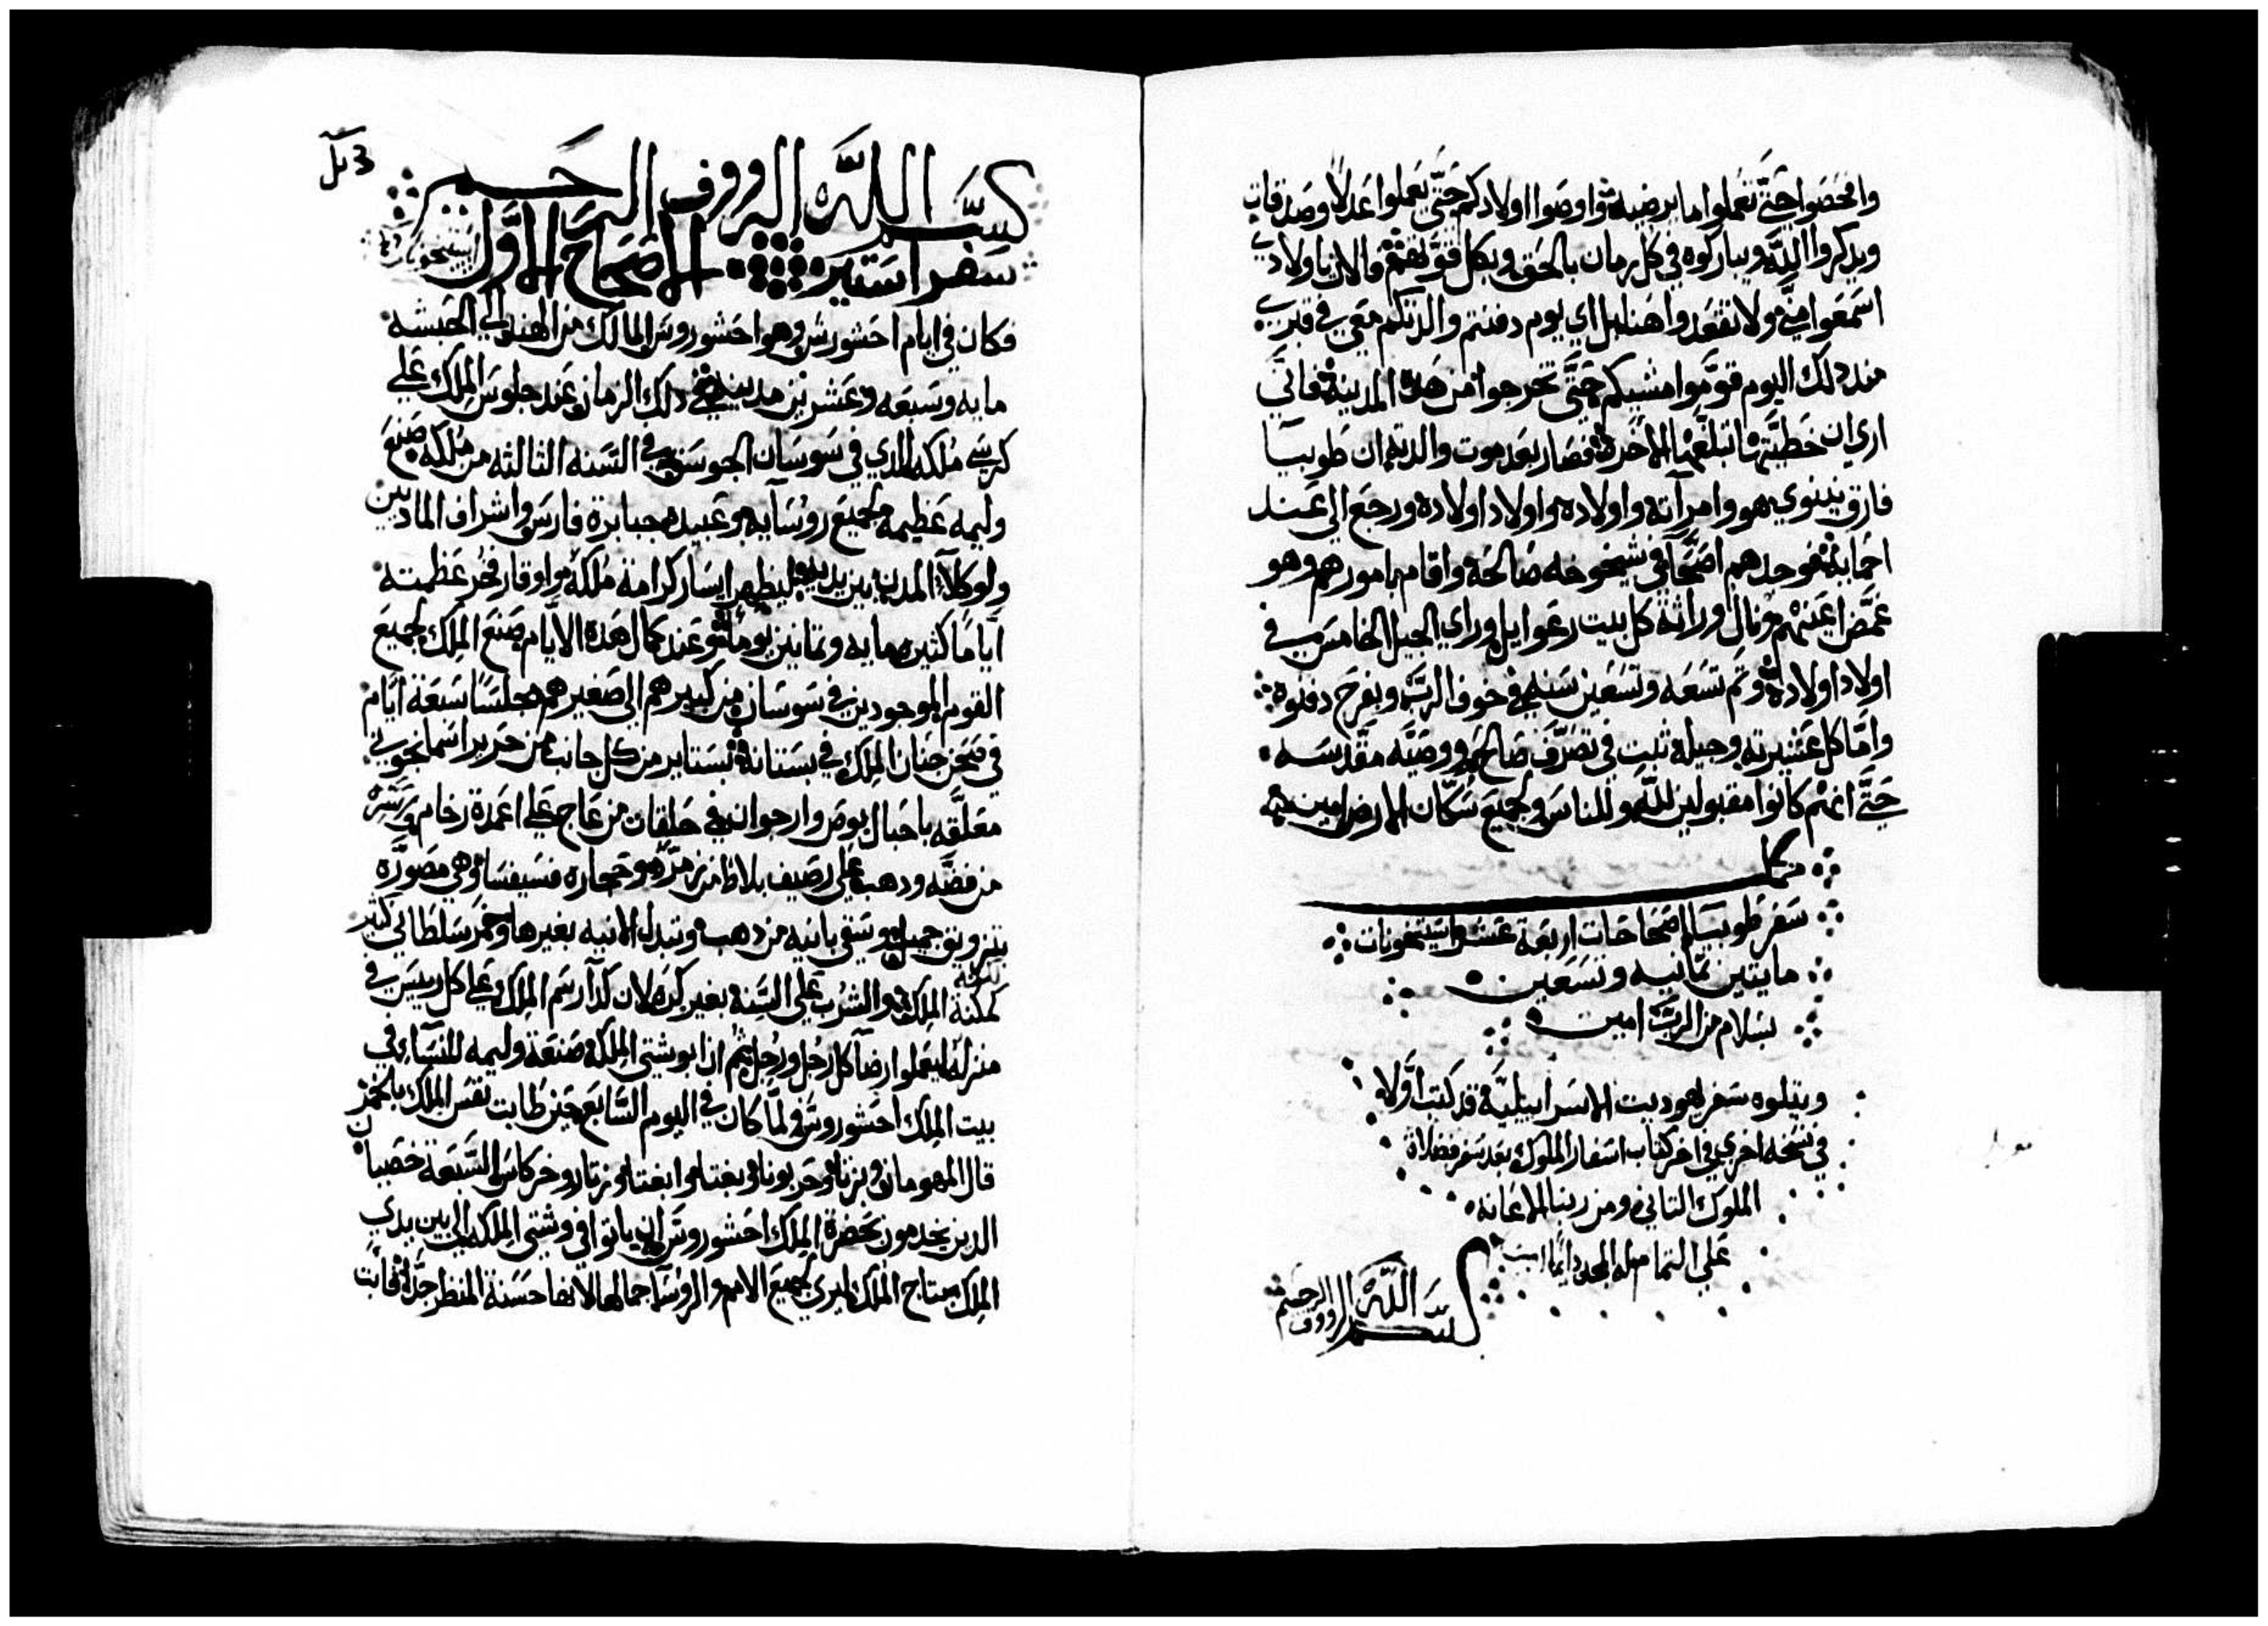 وافحصوا حتى تعملوا ما يرضيه واوصوا اولادكم حتى يعملوا عدلا وصدقات
ويدكروا الله ويباركوه في كل زمان بالحق وبكل قوتهم والان يا اولادي
اسمعوا مني ولا تقعدوا هنا بل اي يوم دفنتم والدتكم معي في قبري
مند دلك اليوم قوموا مشيكم حتى تخرجوا من هده المدينة فاني
اري ان خطيتها تبلغها الاخرة فصار بعد موت والدته ان طوبيا
فارق نينوي هو وامراته واولاده واولاد اولاده ورجع الي عند
احمايه فوجدهم اصحا في شيخوخه صالحة واقام بامورهم وهو
غمض اعينهم ونال وراثة كل بيت رعوايل وراي الجيل الخامس في
اولاد اولاده وتم تسعه وتسعين سنه في خوف الرب وبفرح دفنوه
واما كل عشيرته وجيله ثبت في تصرف صالح ووصيه مقدسه
حتى انهم كانوا مقبولين لله وللناس ولجميع سكان الارض امين
كمل
سفر طوبيا اصحاحات اربعة عشر استيخونات
مايتين تمانيه وتسعين
بسلام من الرب امين
ويتلوه سفر يهوديت الاسراييلية قد كتب اولا
في نسخه اخري في اخر كتاب اسفار الملوك بعد سفر فضلاة
الملوك التاني ومن ربنا الاعانه
علي التمام له المجد دايما امين
بسم الله الرووف الرحيم
بسم الله الرووف الرحيم
سفر استير الاصحاح الاول
فكان في ايام احشورش وهو احشوروش المالك من الهند الي الحبشه
مايه وسبعه وعشرين مدينه في دلك الزمان عند جلوس الملك علي
كرسي ملكه الدي في سوسان الجوسق في السنه الثالثه من ملكه صنع
وليمه عظيمه لجميع روسايه وعبيده جبابرة فارس واشراف المادين
ولوكلآ المدن بين يديه ليظهر ايسار كرامة ملكه واوقار فخر عظمته
اياما كثيره مايه وتمانين يوما وعند كمال هده الايام صنع الملك لجميع
القوم الموجودين في سوسان من كبيرهم الي صغيرهم مجلسا سبعة ايام
في صحن جنان الملك في بستانه بستاير من كل جانب من حرير اسمانجوني
معلقه باحبال بوص وارجوان في حلقات من عاج علي اعمدة رخام واسره
من فضه ودهب علي رصيف بلاط من مرمر وحجاره فسيفسا وهي مصوره
بتزويق جميل ويسقي بانيه من دهب وتبدل الانيه بغيرها وخمر سلطاني كثير
كمكنة الملك والشرب علي السنه بغير كره لان كدا رسم الملك علي كل رييس في
منزله ليعملوا رضا كل رجل ورجل ثم ان ابوشتي الملكه صنعة وليمه للنسا في
بيت الملك احشوروش ولما كان في اليوم السابع حين طابت نفس الملك بالخمر
قال المهومان وبزتا وحربونا وبغتا وابغتا وزتار وخركاس السبعة خصيان
الدين يخدمون بحضرة الملك احشوروش ان ياتوا في وشتي الملكه الي بين يدي
الملك بتاج الملك ليري لجميع الامم والروسا جمالها لانها حسنة المنظر جدا فابت